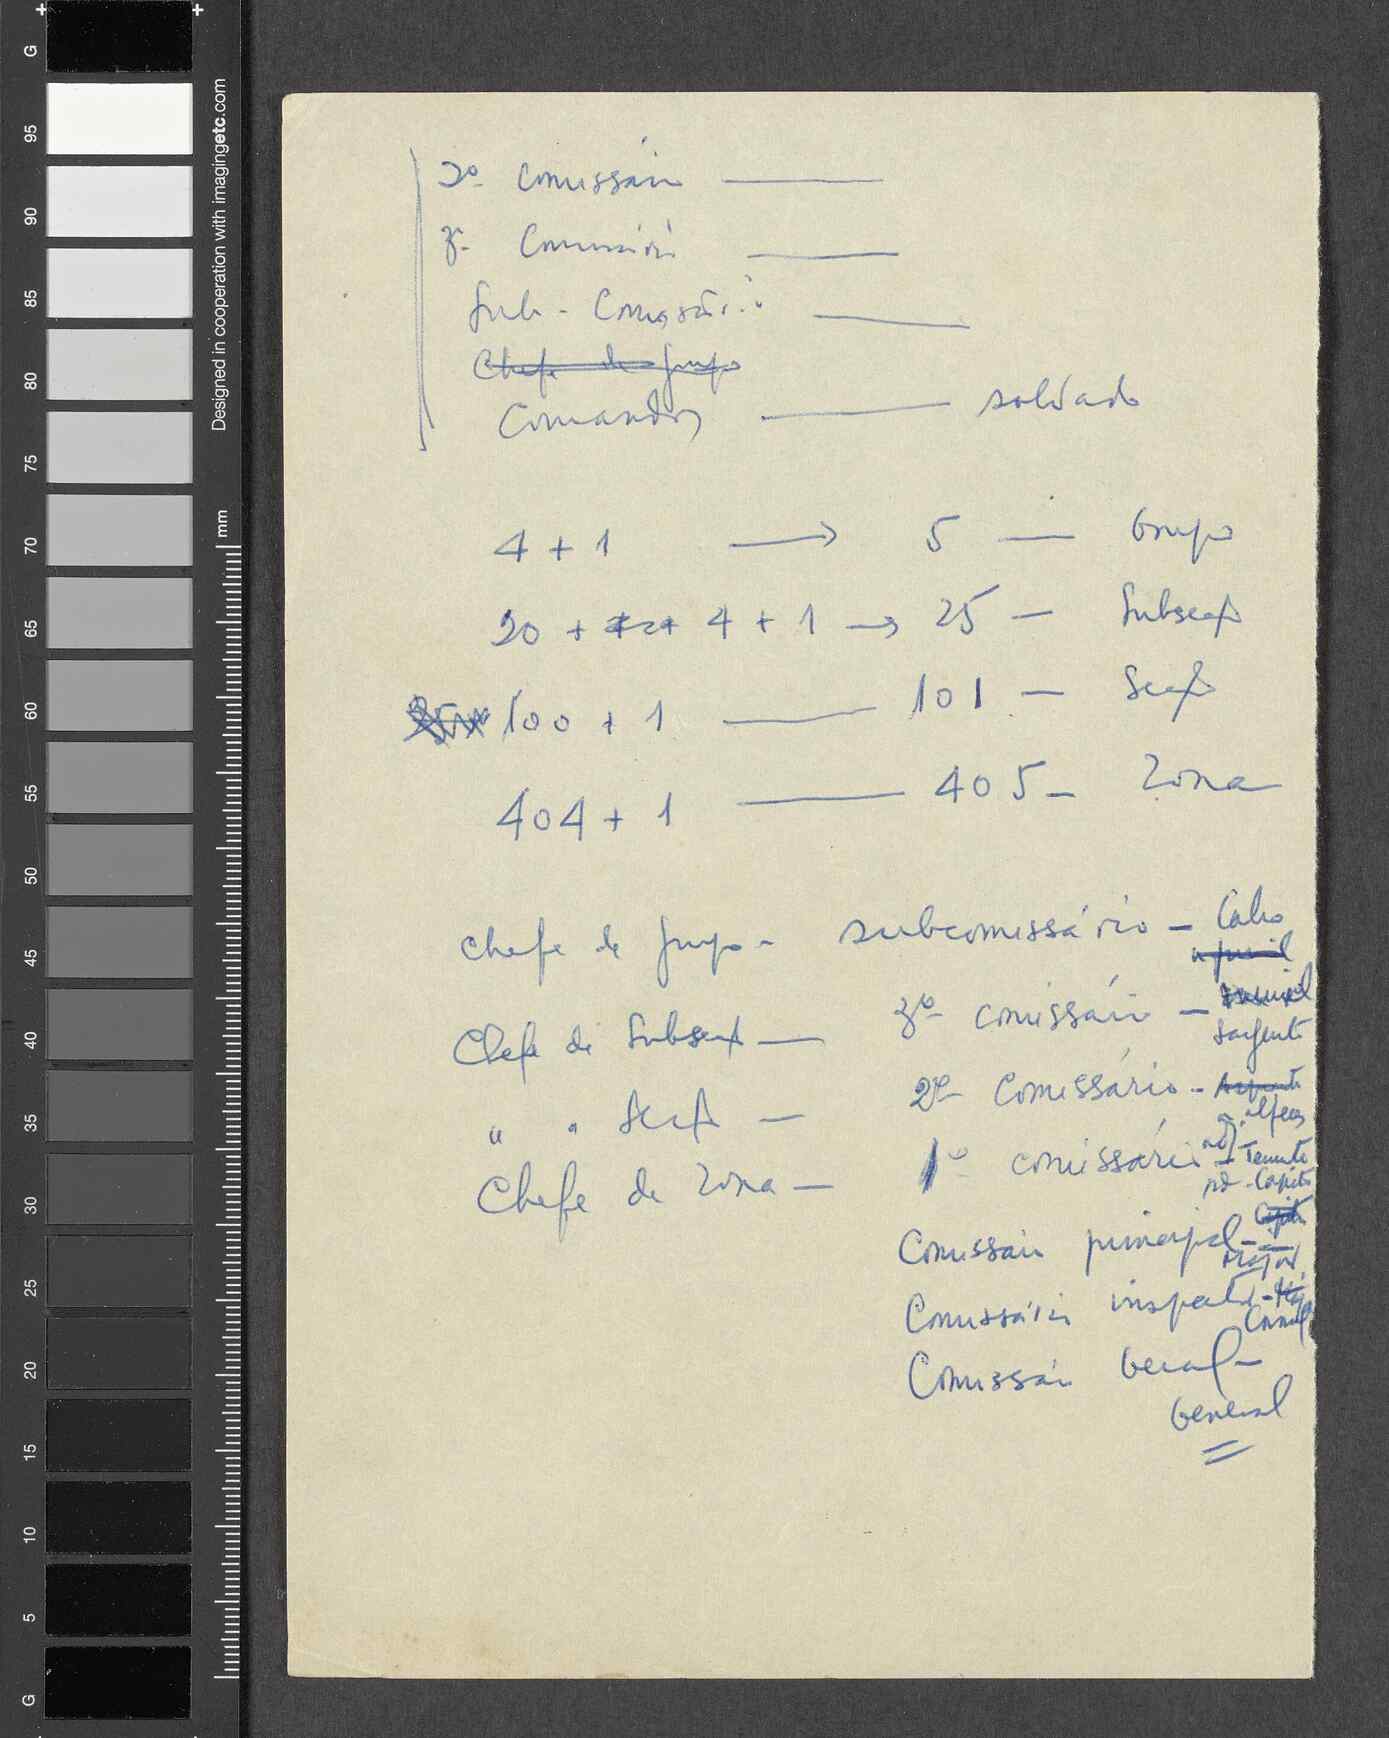 2º Comissário ———
3º Comissário ———
Sub-Comissário ———
Chefe de grupo
Comandos ——— soldado
4 + 1 → 5 — Grupo
20 + 4 + 1 → 25 — Subsecção
100 + 1 — 101 — Secção
404 + 1 — 405 — Zona
Chefe de grupo - subcomissário — Cabo
Chefe de Subsecção — 3º comissário — Sargento
" " Secção — 2º Comissário - alferes
Chefe de Zona — 1º comissário adj. — Tenente
pd - Capitão
Comissário principal — Major
Comissário inspector - Coronel
Comissário Geral —
General
G 95 90 85 80 75 70 65 60 55 50 45 40 35 30 25 20 15 10 5 G
Designed in cooperation with imagingetc.com
mm